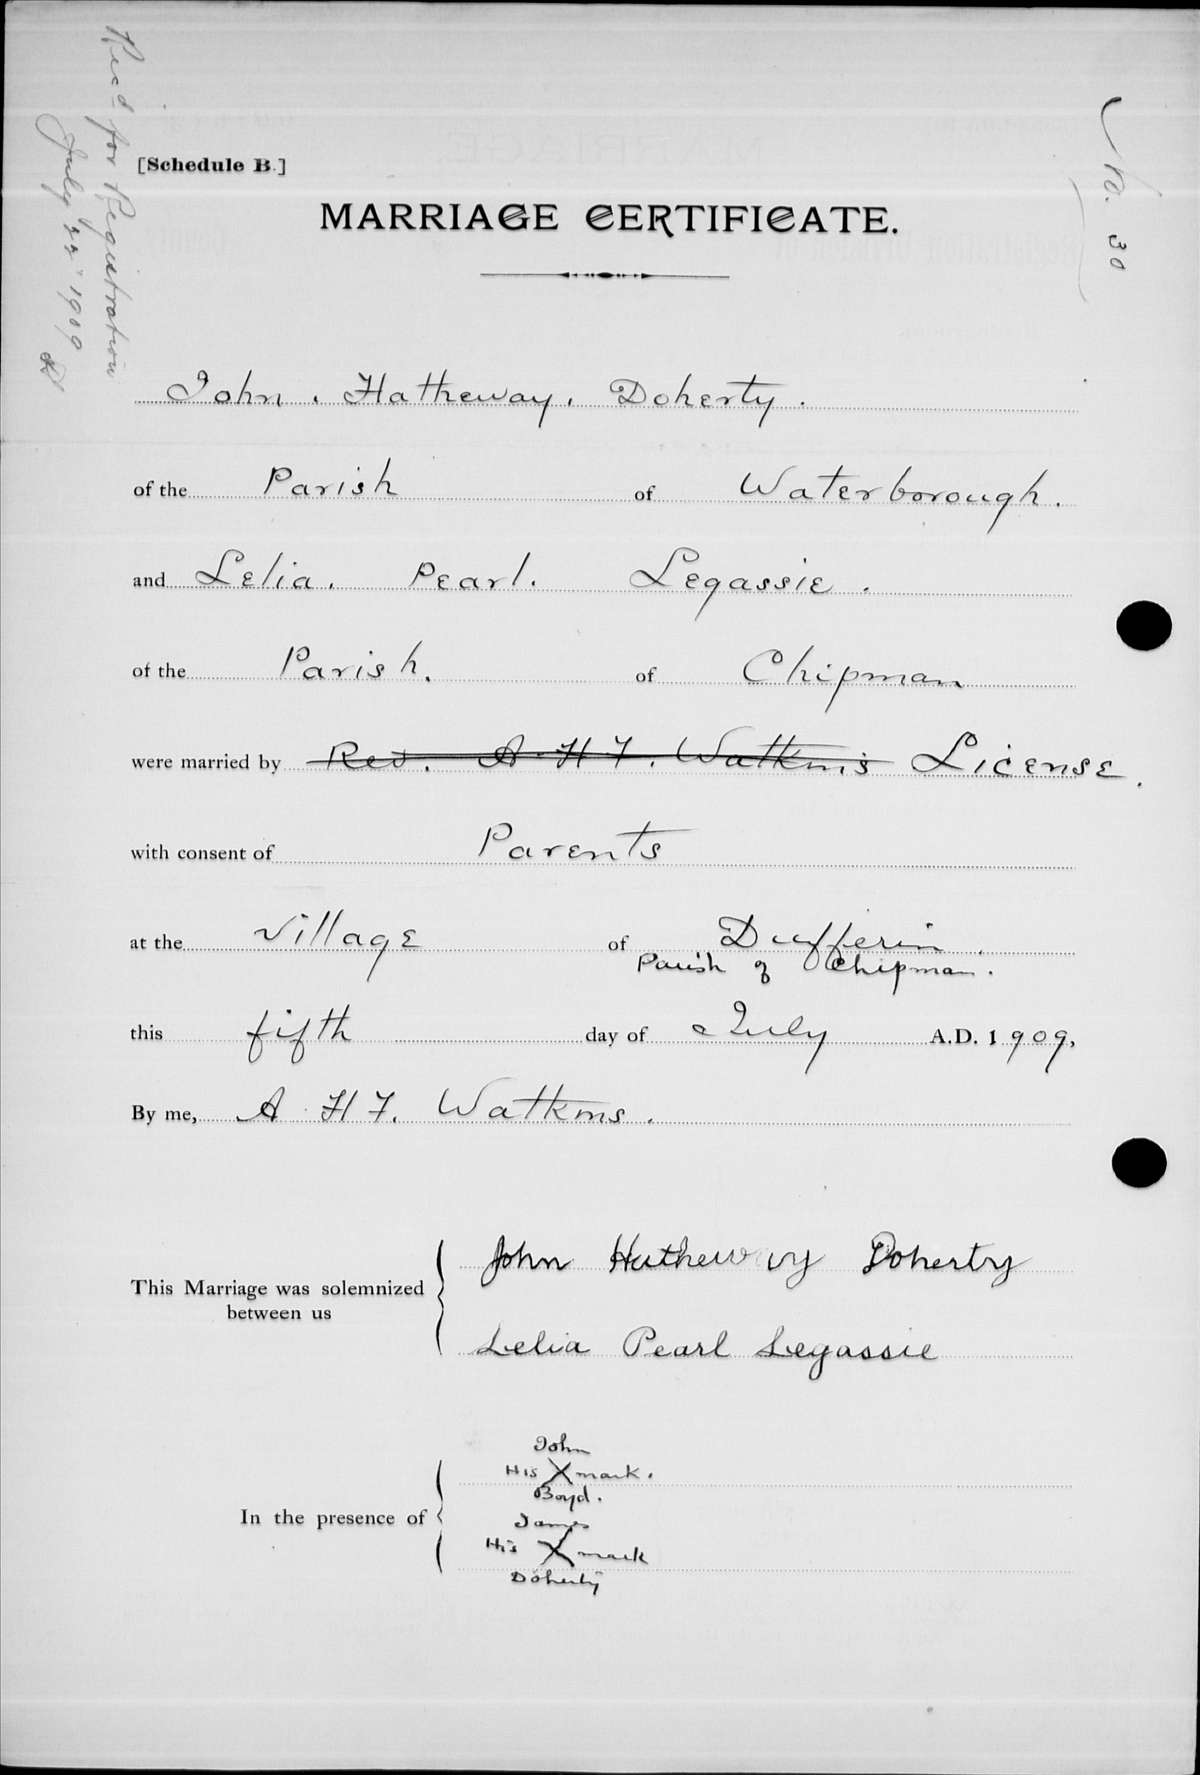 Rec'd for Registration
July "22" 1909
No. 30
[Schedule B.]
MARRIAGE CERTIFICATE.
John. Hatheway. Doherty.
of the Parish of Waterborough.
and Lelia. Pearl. Legassie.
of the Parish. of Chipman
were married by Rev. A. H F. Watkins License.
with consent of Parents
at the Village of Dufferin.
Parish of Chipman.
this fifth day of July A.D. 1909,
By me, A. H F. Watkins.
This Marriage was solemnized
between us
John Hatheway Doherty
Lelia Pearl Legassie
In the presence of
John
His X mark.
Boyd.
James
His X mark
Doherty